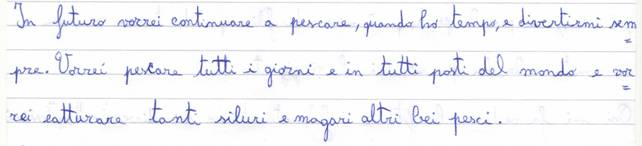 In futuro vorrei continuare a pescare, quando ho tempo, e divertirmi sem=
pre. Vorrei pescare tutti i giorni e in tutti posti del mondo e vor=
rei catturare tanti siluri e magari altri bei pesci.